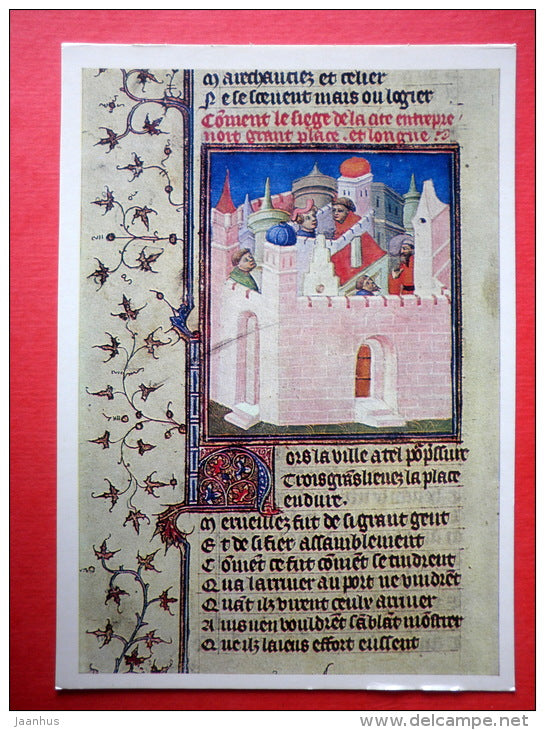 Marchauciez et celier
Ne se scevent mais ou logier
Cōment le siege de la cite entrepre
noit grant place et longue
ors la ville a tel
Trois grās lieuez la place
endure
Merveillez fut de si grant gent
Et de si fier assamblement
Cōmēt ce fut cōmēt se tindrent
Qua larriver au port ne vindrēt
Quāt ilz virent ceulx arriver
A vis uen vouldrēt sāblāt mōstrer
Que ilz laiens effort eussent
Jaanhus
www.delcampe.net